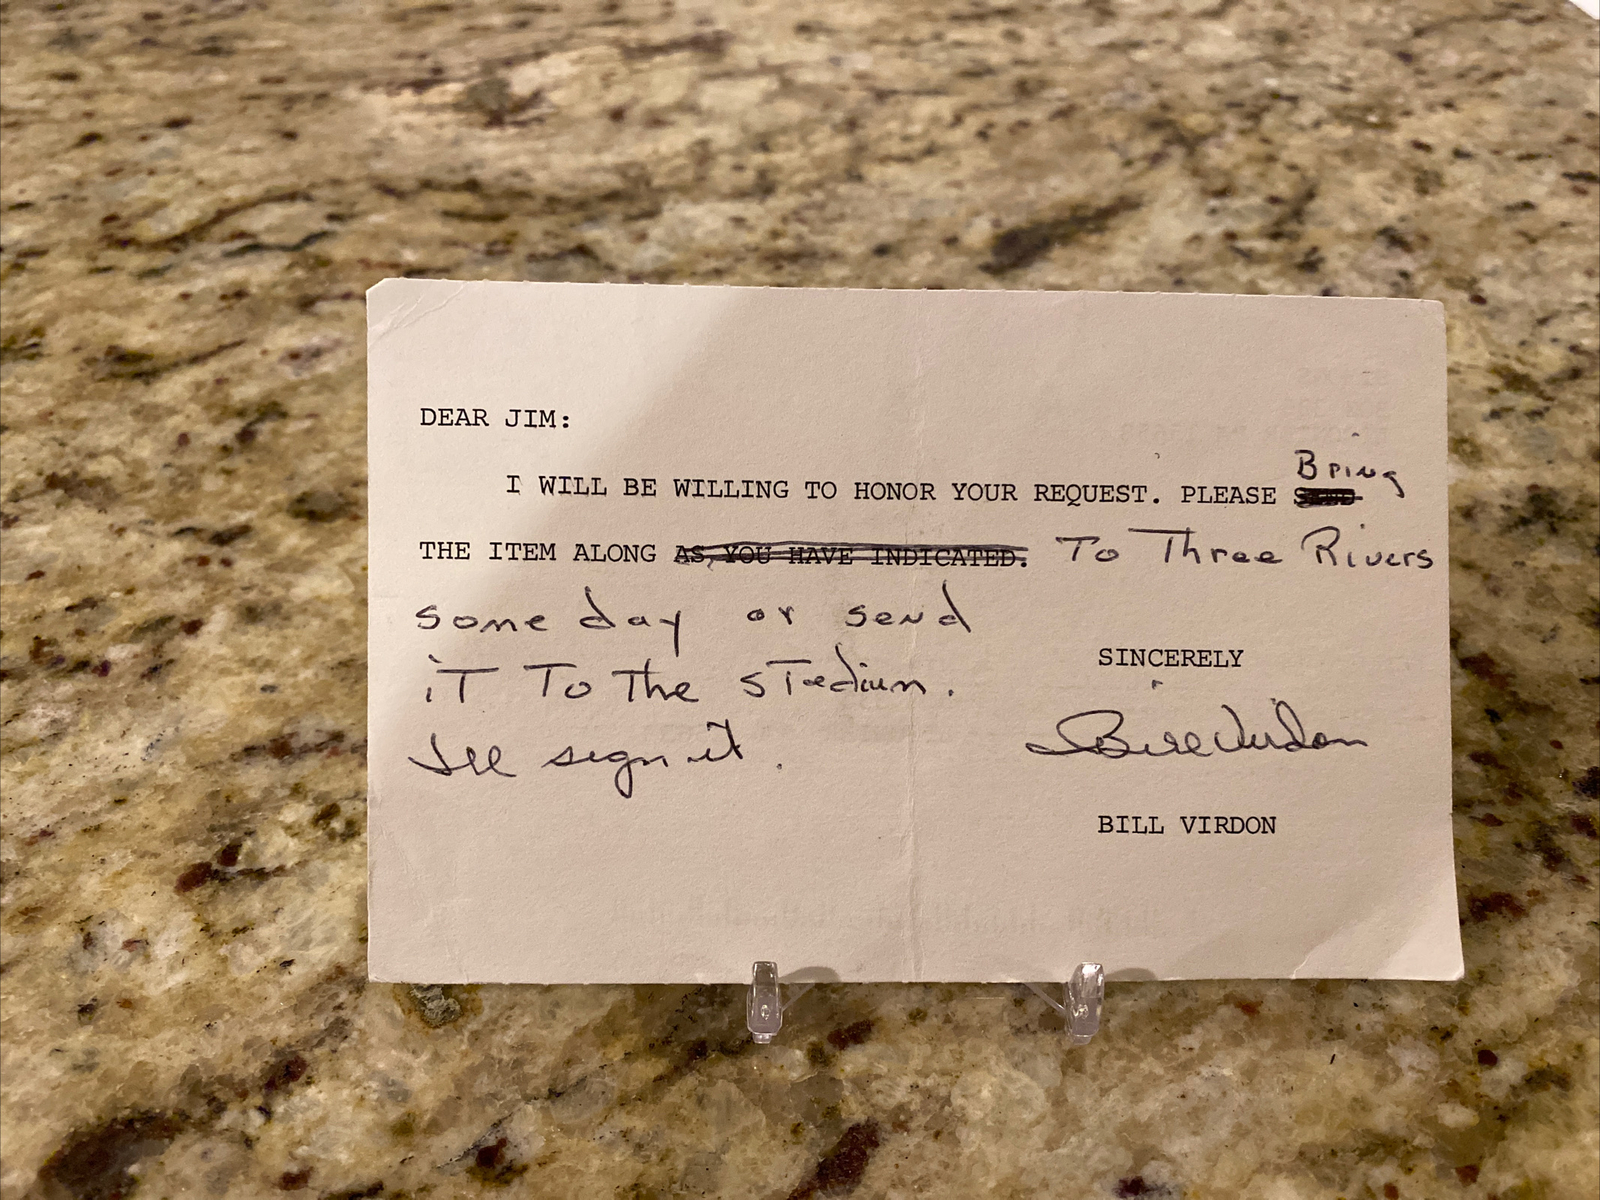 DEAR JIM:
I WILL BE WILLING TO HONOR YOUR REQUEST. PLEASE Bring
THE ITEM ALONG AS YOU HAVE INDICATED. To Three Rivers
some day or send
iT To The sTadium.
I'll sign it.
SINCERELY
Bill Virdon
BILL VIRDON